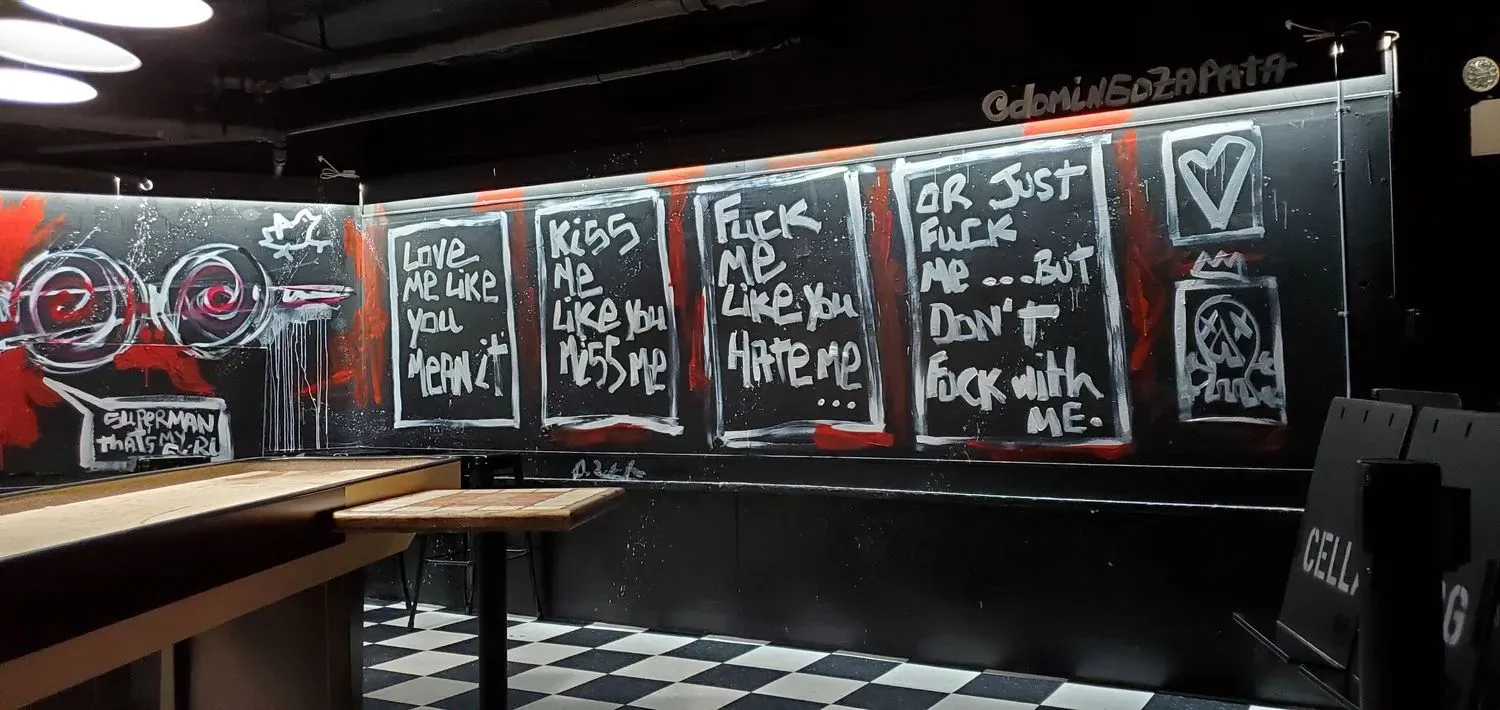 @dominEDZAPATA
LOVE
ME LIKE
YOU
MEAN it
Kiss
ME
Like you
Miss Me
Fuck
ME
Like You
HAte me
...
OR JUST
FUCK
ME ....BUT
DON'T
FUCK with
ME.
SUPERMAN
THATS MY
CELL
G